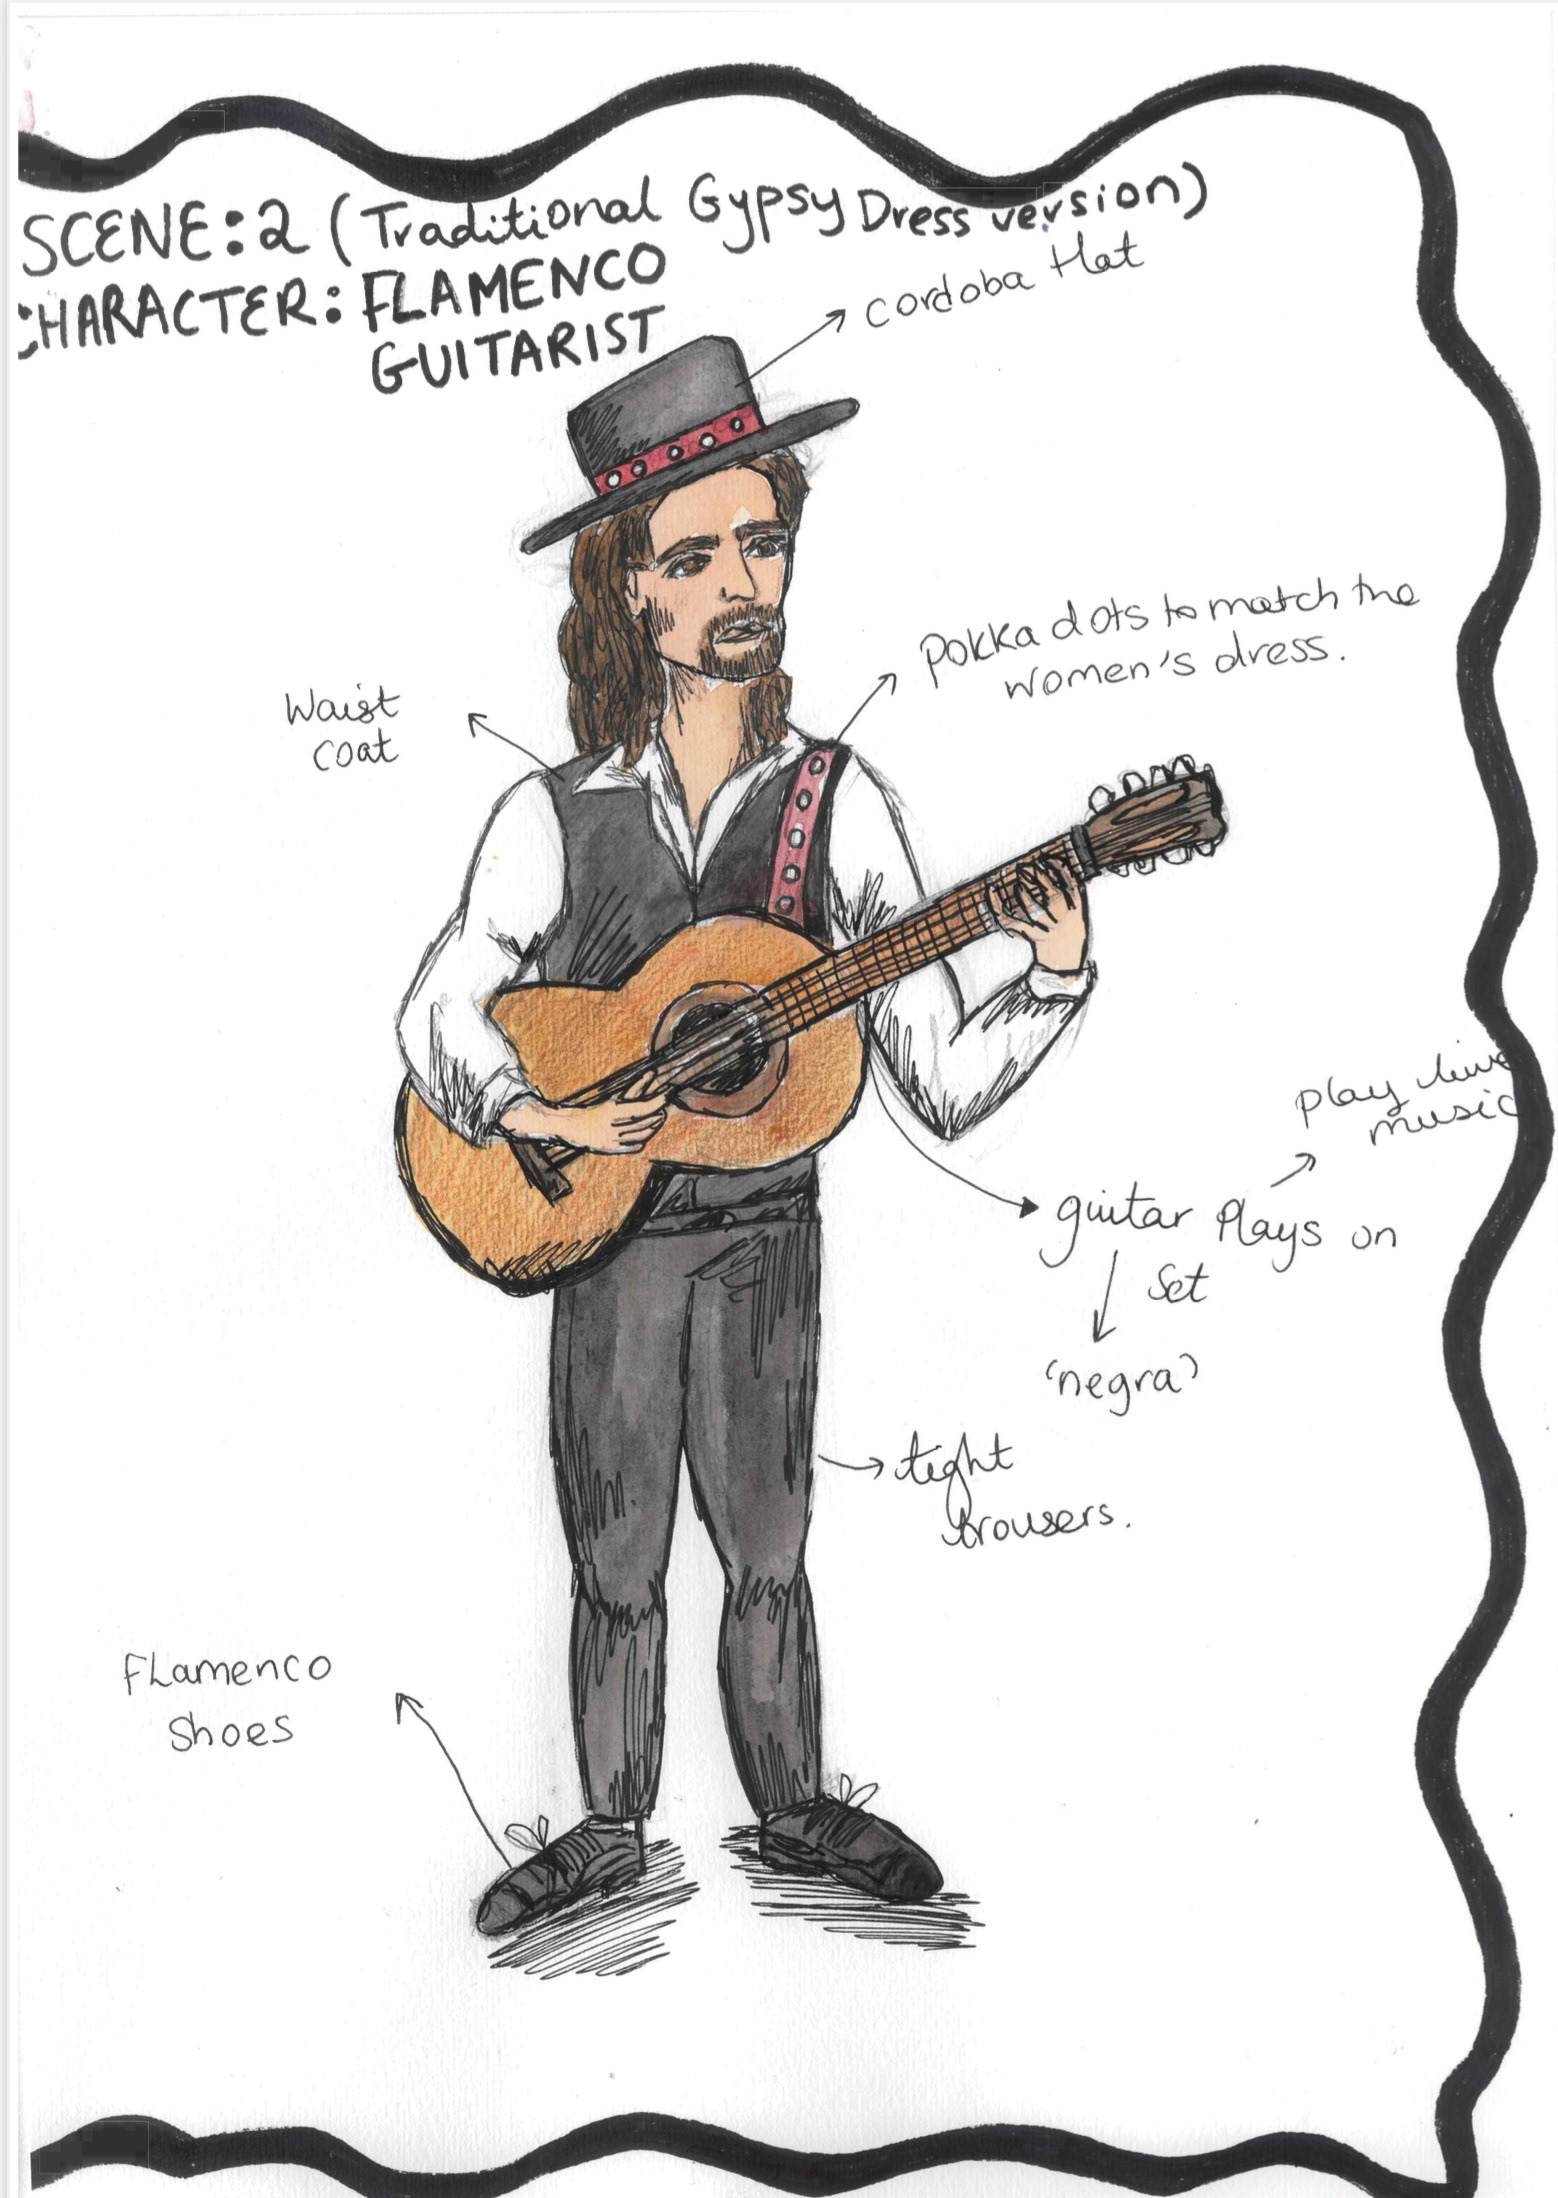 SCENE: 2 (Traditional Gypsy Dress version)
CHARACTER: FLAMENCO
GUITARIST
cordoba Hat
Pokka dots to match the
women's dress.
Waist
coat
play live
music
guitar Plays on
Set
'negra'
tight
trousers.
Flamenco
Shoes